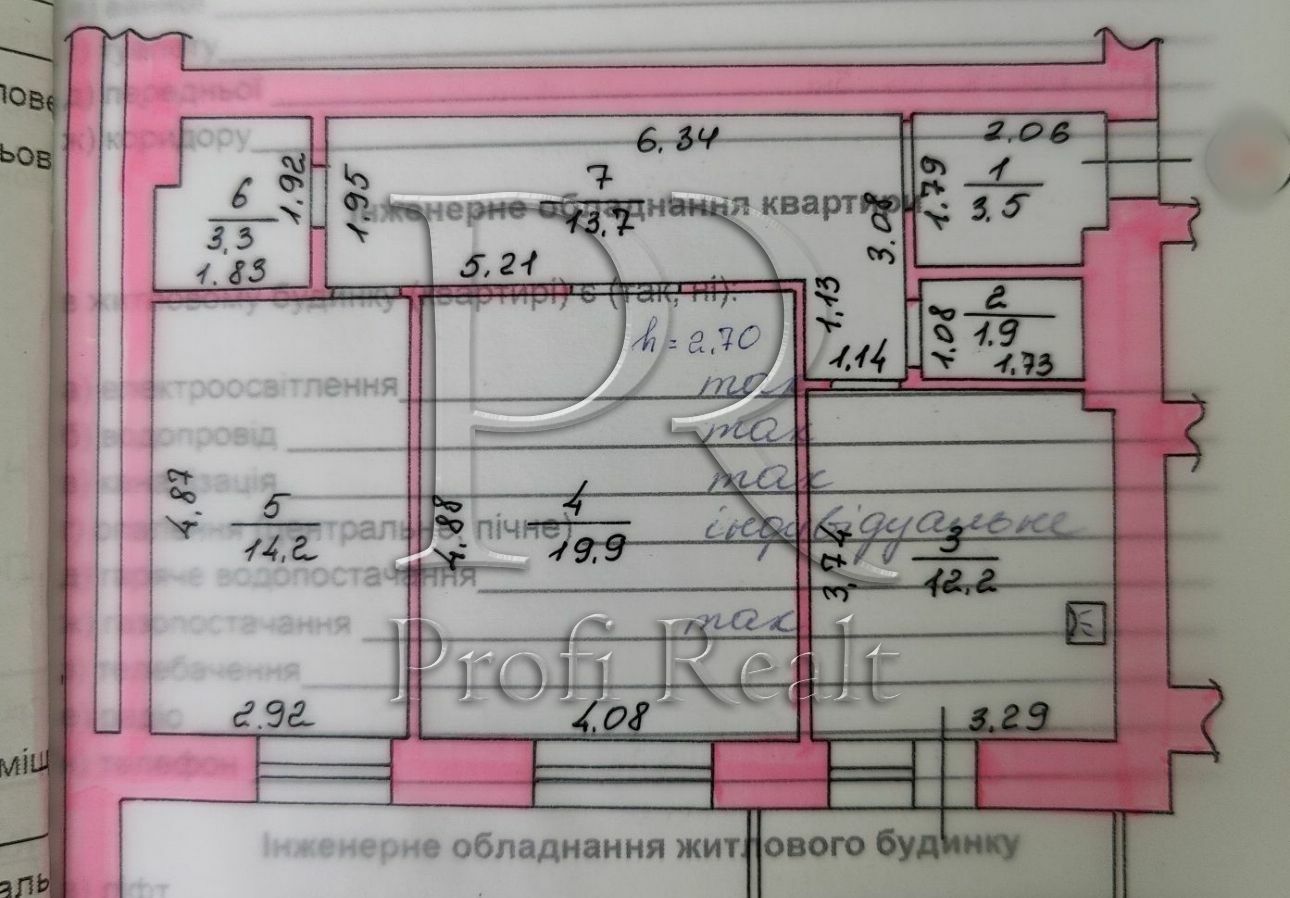 лове
ж) коридору
ьов
6.34
2.06
6
3.3
1.83
1.92
1.95
7
13.7
3.08
1.79
1
3.5
Інженерне обладнання квартири
5.21
1.13
1.14
1.08
2
1.9
1.73
в житловому будинку (квартирі) є (так, ні):
h = 2,70
а) електроосвітлення так
б) водопровід так
в) каналізація так
4.87
5
14.2
4.88
4
19.9
3.74
3
12.2
г) опалення (центральне, пічне) індивідуальне
д) гаряче водопостачання
ж) газопостачання так
Profi Realt
з) телебачення
2.92
4.08
3.29
міщ
телефон
Інженерне обладнання житлового будинку
аль
ліфт